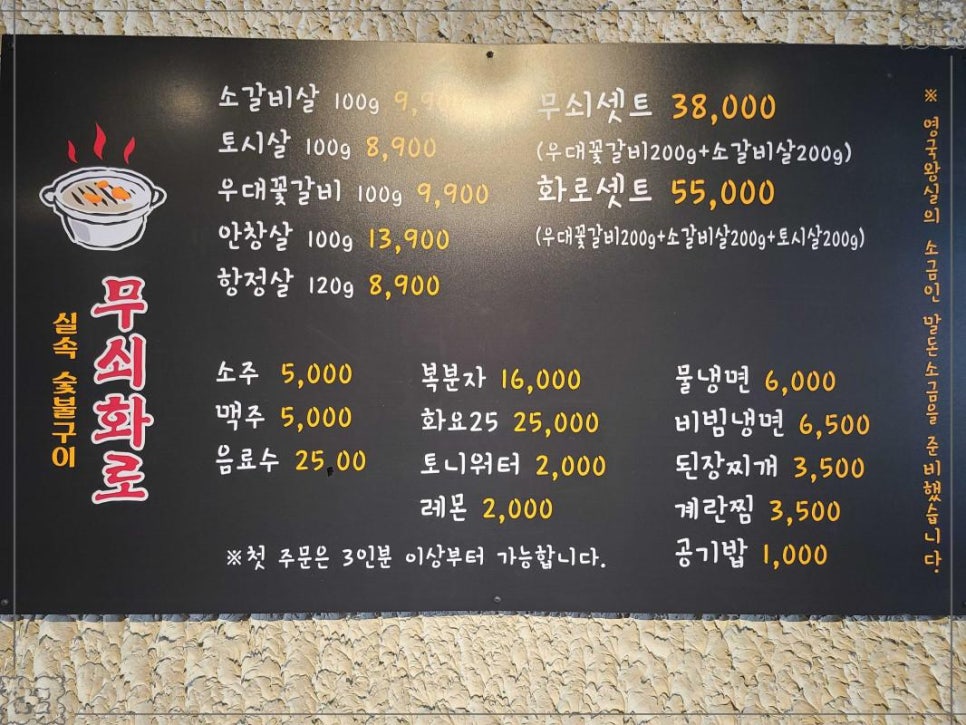 무쇠화로
실속 숯불구이
소갈비살 100g 9,900
토시살 100g 8,900
우대꽃갈비 100g 9,900
안창살 100g 13,900
항정살 120g 8,900
무쇠셋트 38,000
(우대꽃갈비200g+소갈비살200g)
화로셋트 55,000
(우대꽃갈비200g+소갈비살200g+토시살200g)
소주 5,000
맥주 5,000
음료수 25,00
복분자 16,000
화요25 25,000
토니워터 2,000
레몬 2,000
물냉면 6,000
비빔냉면 6,500
된장찌개 3,500
계란찜 3,500
공기밥 1,000
※첫 주문은 3인분 이상부터 가능합니다.
※ 영국왕실의 소금인 말돈소금을 준비했습니다.